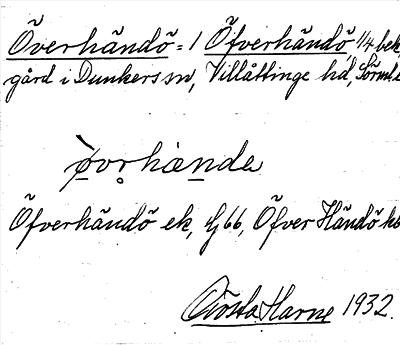 Överhändö = 1 Öfverhändö, 1/4 bek
gård i Dunkers sn, Villåttinge hd, Sörml.
øvrhænda
Öfverhändö ek, G 66, Öfver Händö kb
Gösta Harne 1932.